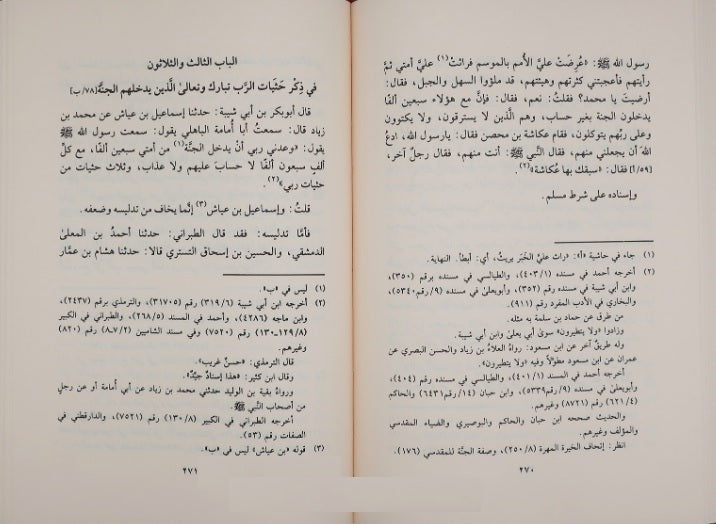 رسول الله ﷺ: «عُرِضَتْ عليَّ الأُمم بالموسم فراثتْ(١) عليَّ أمتي ثمَّ
رأيتهم فأعجبتني كثرتهم وهيئتهم، قد ملؤوا السهل والجبل، فقال:
أرضيتَ يا محمد؟ فقلتُ: نعم، فقال: فإنَّ مع هؤلاء سبعين ألفًا
يدخلون الجنة بغير حساب، وهم الَّذين لا يسترقون، ولا يكتوون
وعلى ربِّهم يتوكلون، فقام عكاشة بن محصن فقال: يارسول الله، ادعُ
اللهَ أن يجعلني منهم، فقال النَّبي ﷺ: أنت منهم، فقال رجلٌ آخر،
[٥٩/أ] فقال: «سبقك بها عُكاشة»(٢).
وإسناده على شرط مسلم.
(١) جاء في حاشية «أ»: «راث عليَّ الخَبَر يريثُ، أي: أبطأ. النهاية.
(٢) أخرجه أحمد في مسنده (٤٠٣/١)، والطيالسي في مسنده برقم (٣٥٠)،
وابن أبي شيبة في مسنده رقم (٣٥٢)، وأبويعلىٰ في مسنده (٩/رقم ٥٣٤٠)،
والبخاري في الأدب المفرد رقم (٩١١).
من طرق عن حماد بن سلمة به مثله.
وزادوا «ولا يتطيرون» سوىٰ أبي يعلىٰ وابن أبي شيبة.
وله طريق آخر عن ابن مسعود: رواهُ العلاءُ بن زياد والحسن البصري عن
عمران عن ابن مسعود مطوَّلاً وفيه «ولا يتطيرون».
أخرجه أحمد في المسند (٤٠١/١)، والطيالسي في مسنده رقم (٤٠٤)،
وأبويعلىٰ في مسنده (٩/رقم ٥٣٣٩)، وابن حبان (١٤/رقم ٦٤٣١) والحاكم
(٦٢١/٤) رقم (٨٧٢١) وغيرهم.
والحديث صححه ابن حبان والحاكم والبوصيري والضياء المقدسي
والمؤلف وغيرهم.
انظر: إتحاف الخيرة المهرة (٢٥٠/٨)، وصفة الجنَّة للمقدسي (١٧٦).
٢٧٠
الباب الثالث والثلاثون
في ذِكْر حَثَيات الرَّب تبارك وتعالىٰ الَّذين يدخلهم الجنَّة [٧٨/ب]
قال أبوبكر بن أبي شيبة: حدثنا إسماعيل بن عياش عن محمد بن
زياد قال: سمعتُ أبا أمامة الباهلي يقول: سمعت رسول الله ﷺ
يقول: «وعدني ربي أنْ يدخل الجنَّة(١) من أمتي سبعين ألفًا، مع كلِّ
ألفٍ سبعون ألفًا لا حسابَ عليهم ولا عذاب، وثلاث حثيات من
حثيات ربي»(٢).
قلتُ: وإسماعيل بن عياش(٣) إنَّما يخاف من تدليسه وضعفه.
فأمَّا تدليسه: فقد قال الطبراني: حدثنا أحمدُ بن المعلىٰ
الدمشقي، والحسين بن إسحاق التستري قالا: حدثنا هشام بن عمَّار
(١) ليس في «ب».
(٢) أخرجه ابن أبي شيبة (٣١٩/٦) رقم (٣١٧٠٥)، والترمذي برقم (٢٤٣٧)،
وابن ماجه (٤٢٨٦)، وأحمد في المسند (٢٦٨/٥)، والطبراني في الكبير
(١٢٩/٨-١٣٠) رقم (٧٥٢٠) وفي مسند الشاميين (٨،٧/٢) رقم (٨٢٠)
وغيرهم.
قال الترمذي: «حسنٌ غريب».
وقال ابن كثير: «هذا إسنادٌ جيِّدٌ».
ورواهُ بقية بن الوليد حدثني محمد بن زياد عن أبي أمامة أو عن رجلٍ
من أصحاب النَّبي ﷺ.
أخرجه الطبراني في الكبير (١٣٠/٨) رقم (٧٥٢١)، والدارقطني في
الصفات رقم (٥٣).
(٣) قوله «بن عياش» ليس في «ب».
٢٧١